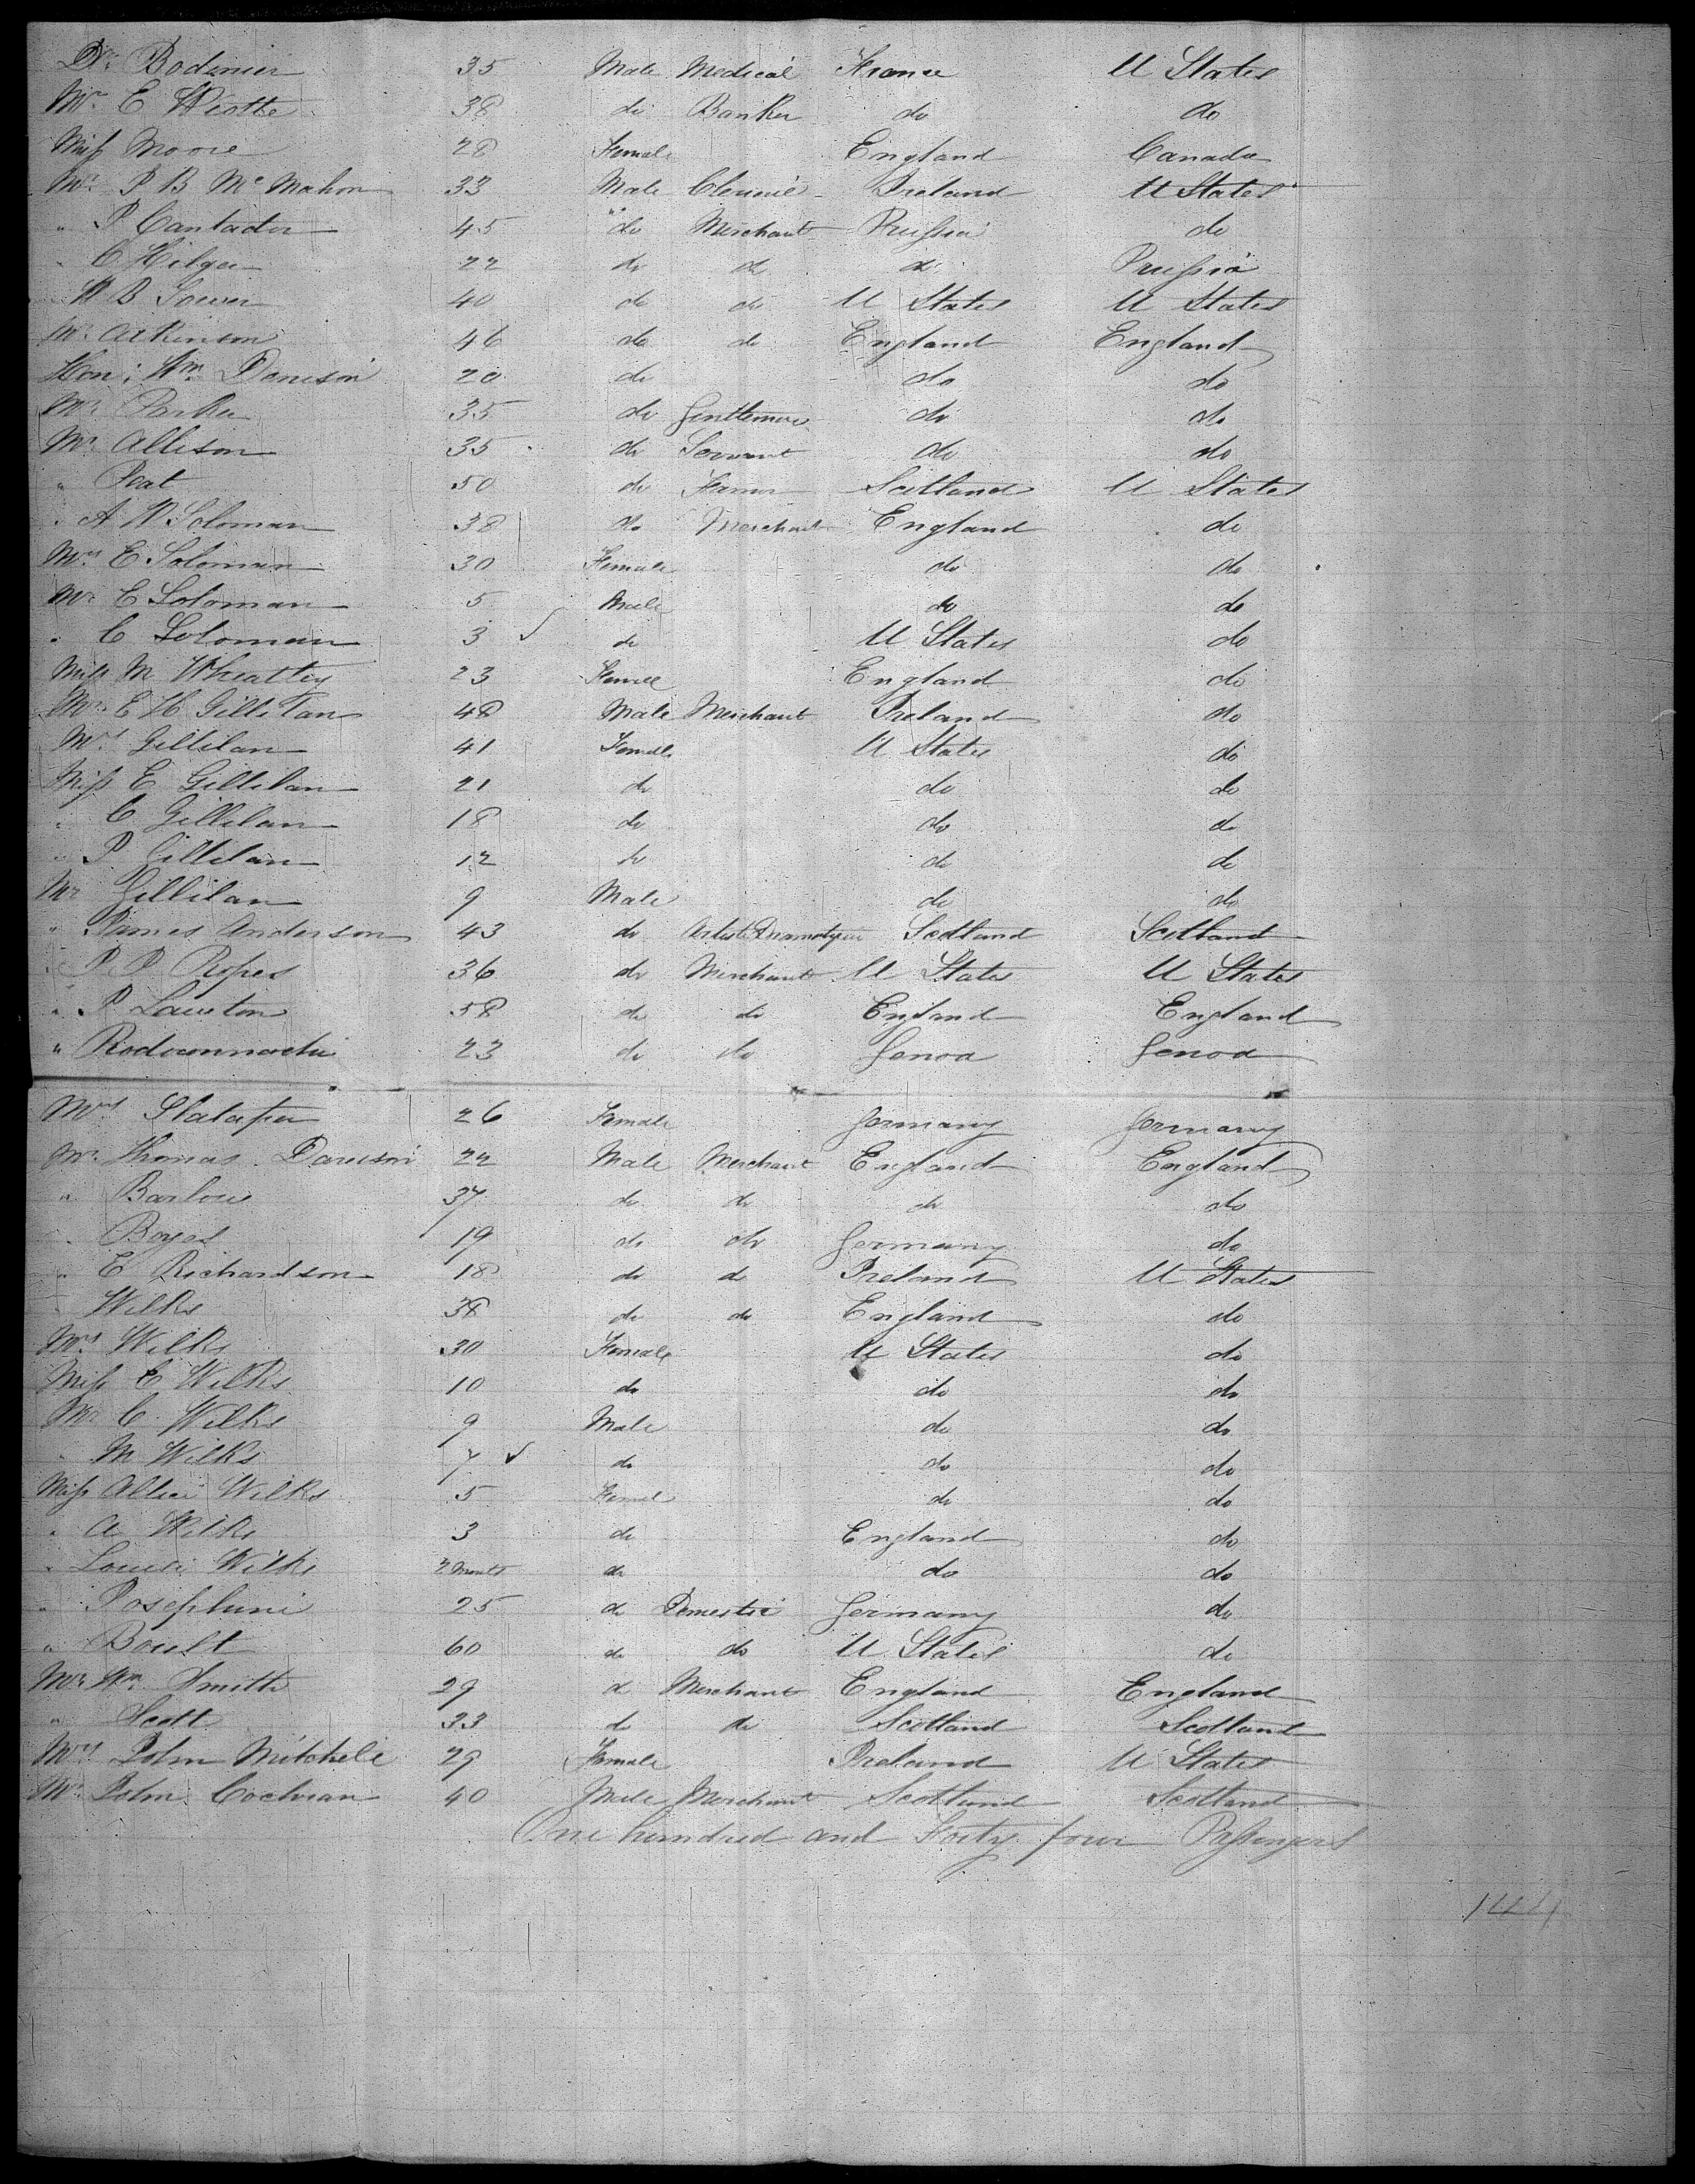 Dr. Bodenier 35 Male Medical France U States
Mr. E Wiotte 38 do Banker do do
Miss Moore 28 Female England Canada
Mr. P B McMahon 33 Male Ireland U States
" P Cantador 45 do Merchant Prussia do
" C Hilger 22 do do do Prussia
" 40 do do U States U States
Mr. Atkinson 46 do do England England
Hon: Wm. Denison 20 do do do
Mr. Parker 35 do Gentleman do do
Mr. Allison 35 do Servant do do
" Peat 50 do Farmer Scotland U States
" A W Soloman 38 do Merchant England do
Mrs E Soloman 30 Female do do
Mr. E Soloman 5 Male do do
" C Soloman 3 ✓ do U States do
Miss M Wheatley 23 Female England do
Mr. E H Gillilan 48 Male Merchant Ireland do
Mrs Gillilan 41 Female U States do
Miss E Gillilan 21 do do do
" C Gillilan 18 do do do
" P Gillilan 12 do do do
Mr Gillilan 9 Male do do
" James Anderson 43 do Artist Scotland Scotland
" Ropes 36 do Merchant U States U States
" P Lawton 58 do do England England
" 23 do do Genoa Genoa
Mrs 26 Female Germany Germany
Mr. Thomas Davison 22 Male Merchant England England
" Barlow 37 do do do do
" Boyes 19 do do Germany do
" E Richardson 18 do do Ireland U States
" Wilks 38 do do England do
Mrs Wilks 30 Female U States do
Miss E Wilks 10 do do do
Mr C. Wilks 9 Male do do
" M Wilks 7 ✓ do do do
Miss Allice Wilks 5 Femal do do
" A Wilks 3 do England do
" Louisa Wilks do do do
" Josephine 25 do Domestic Germany do
" Boult 60 do do U States do
Mr Wm. Smith 29 do Merchant England England
" Scott 33 do do Scotland Scotland
Mrs John Mitchell 29 Female Ireland U States
Mr. John Cochran 40 Male Merchant Scotland Scotland
One hundred and Forty four Passengers
144